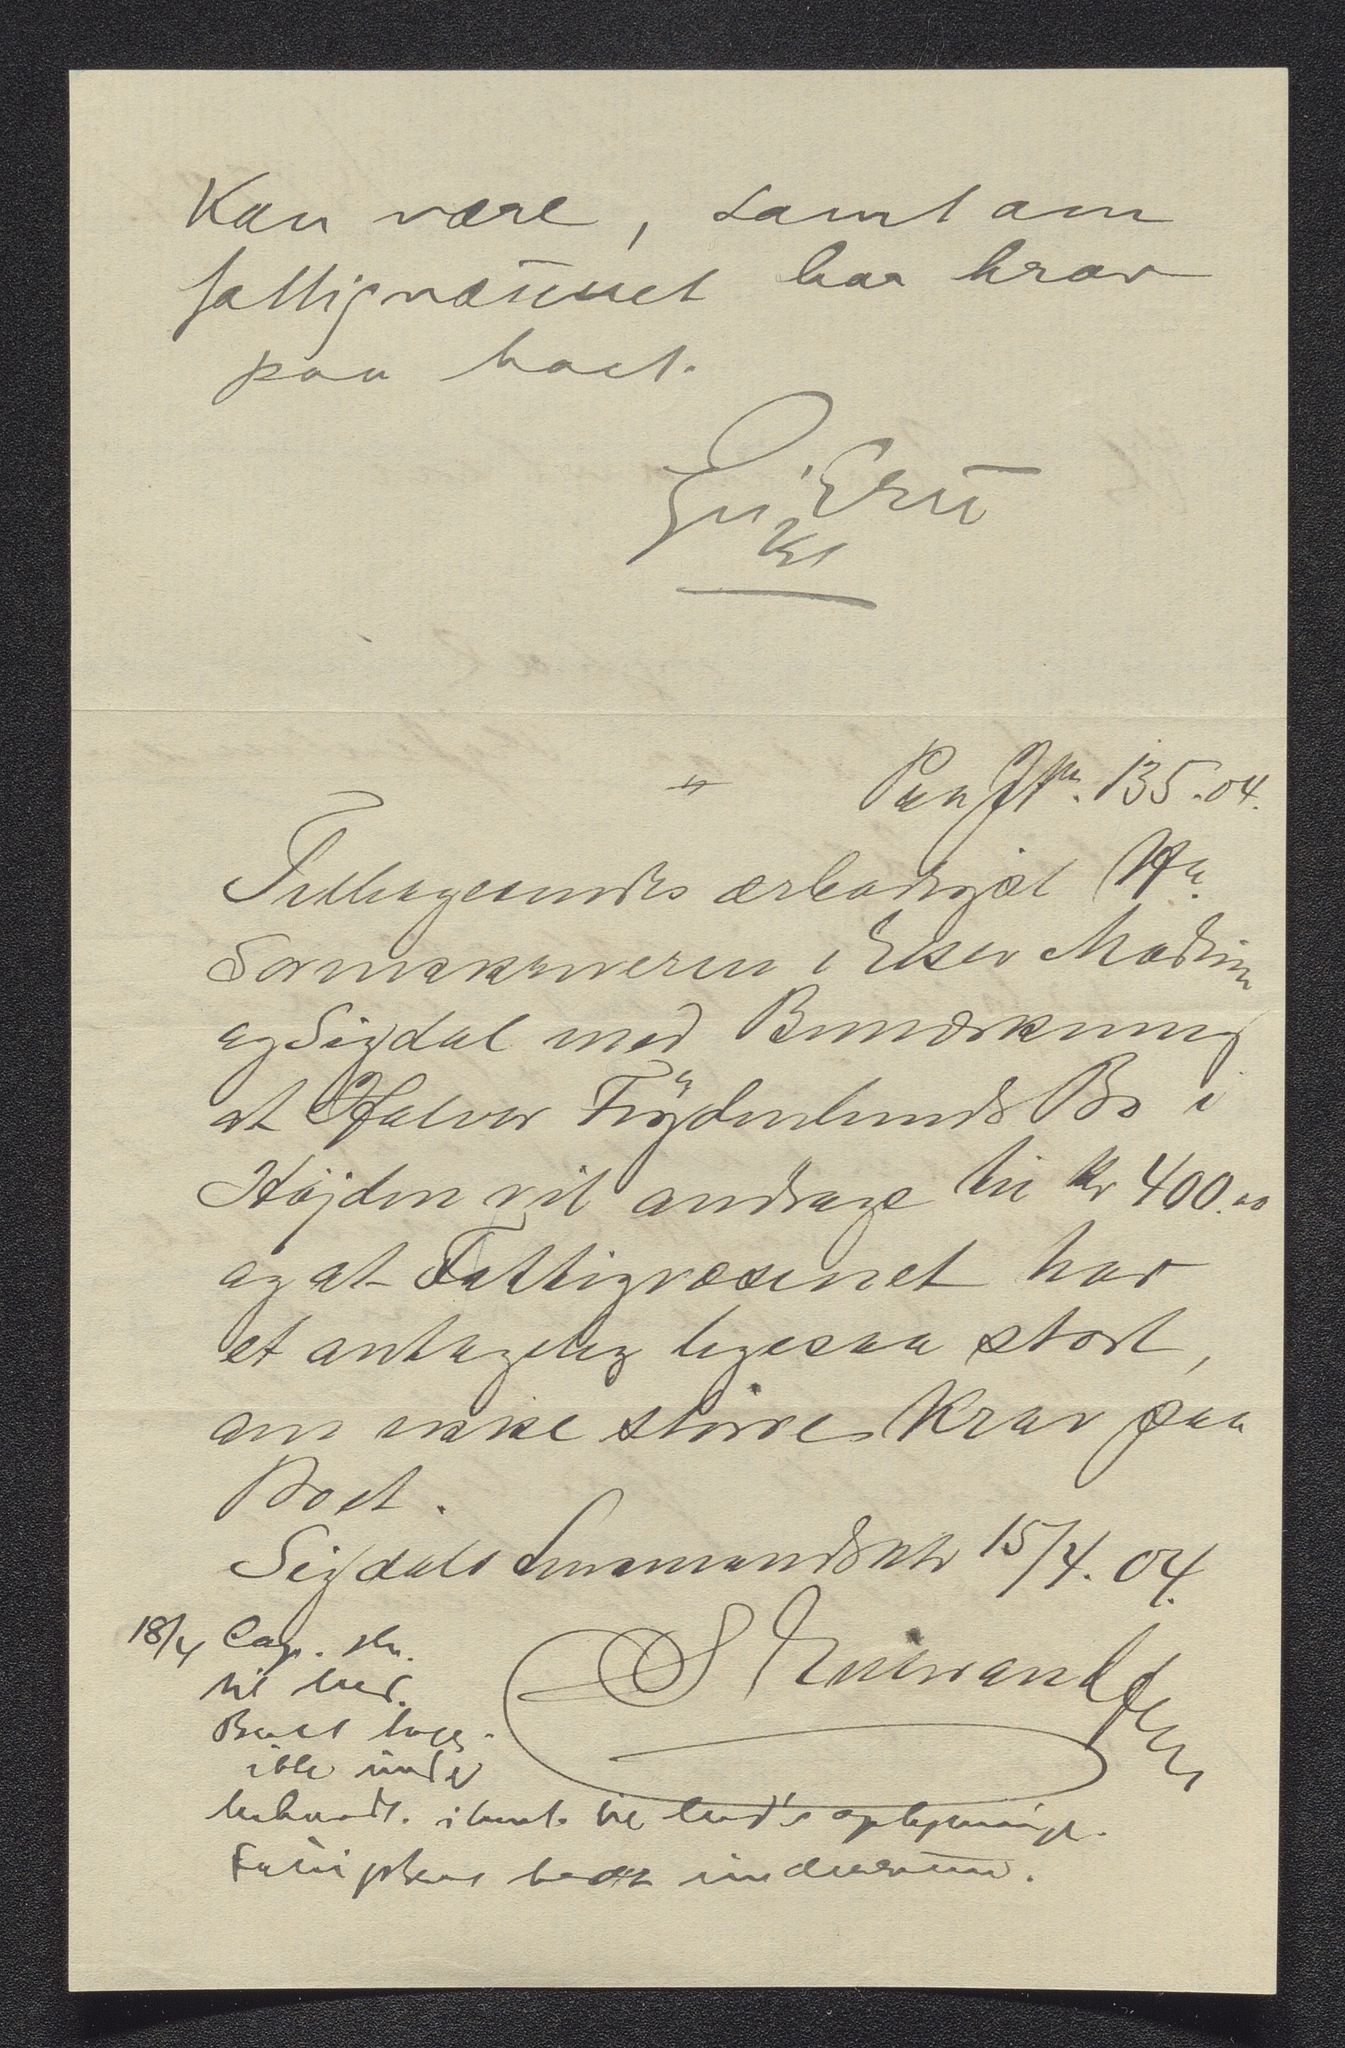 Kan være, samt om
fattigvæsenet har krav
paa boet.
135.04.
Tilbagesendes ærbødigst Hr.
Sorenskriveren i Eker Modum
og Sigdal med Bemærkning
at Halvor Frydenlunds Bo i
Højden vil andrage til Kr 400.00
og at Fattigvæsenet har
et antagelig ligesaa stort,
om ikke større Krav paa
Boet.
Sigdals Lensmandsktr 15/4.04.
18/4
til lens.
Boet
ikke under
behandl. til lensm's